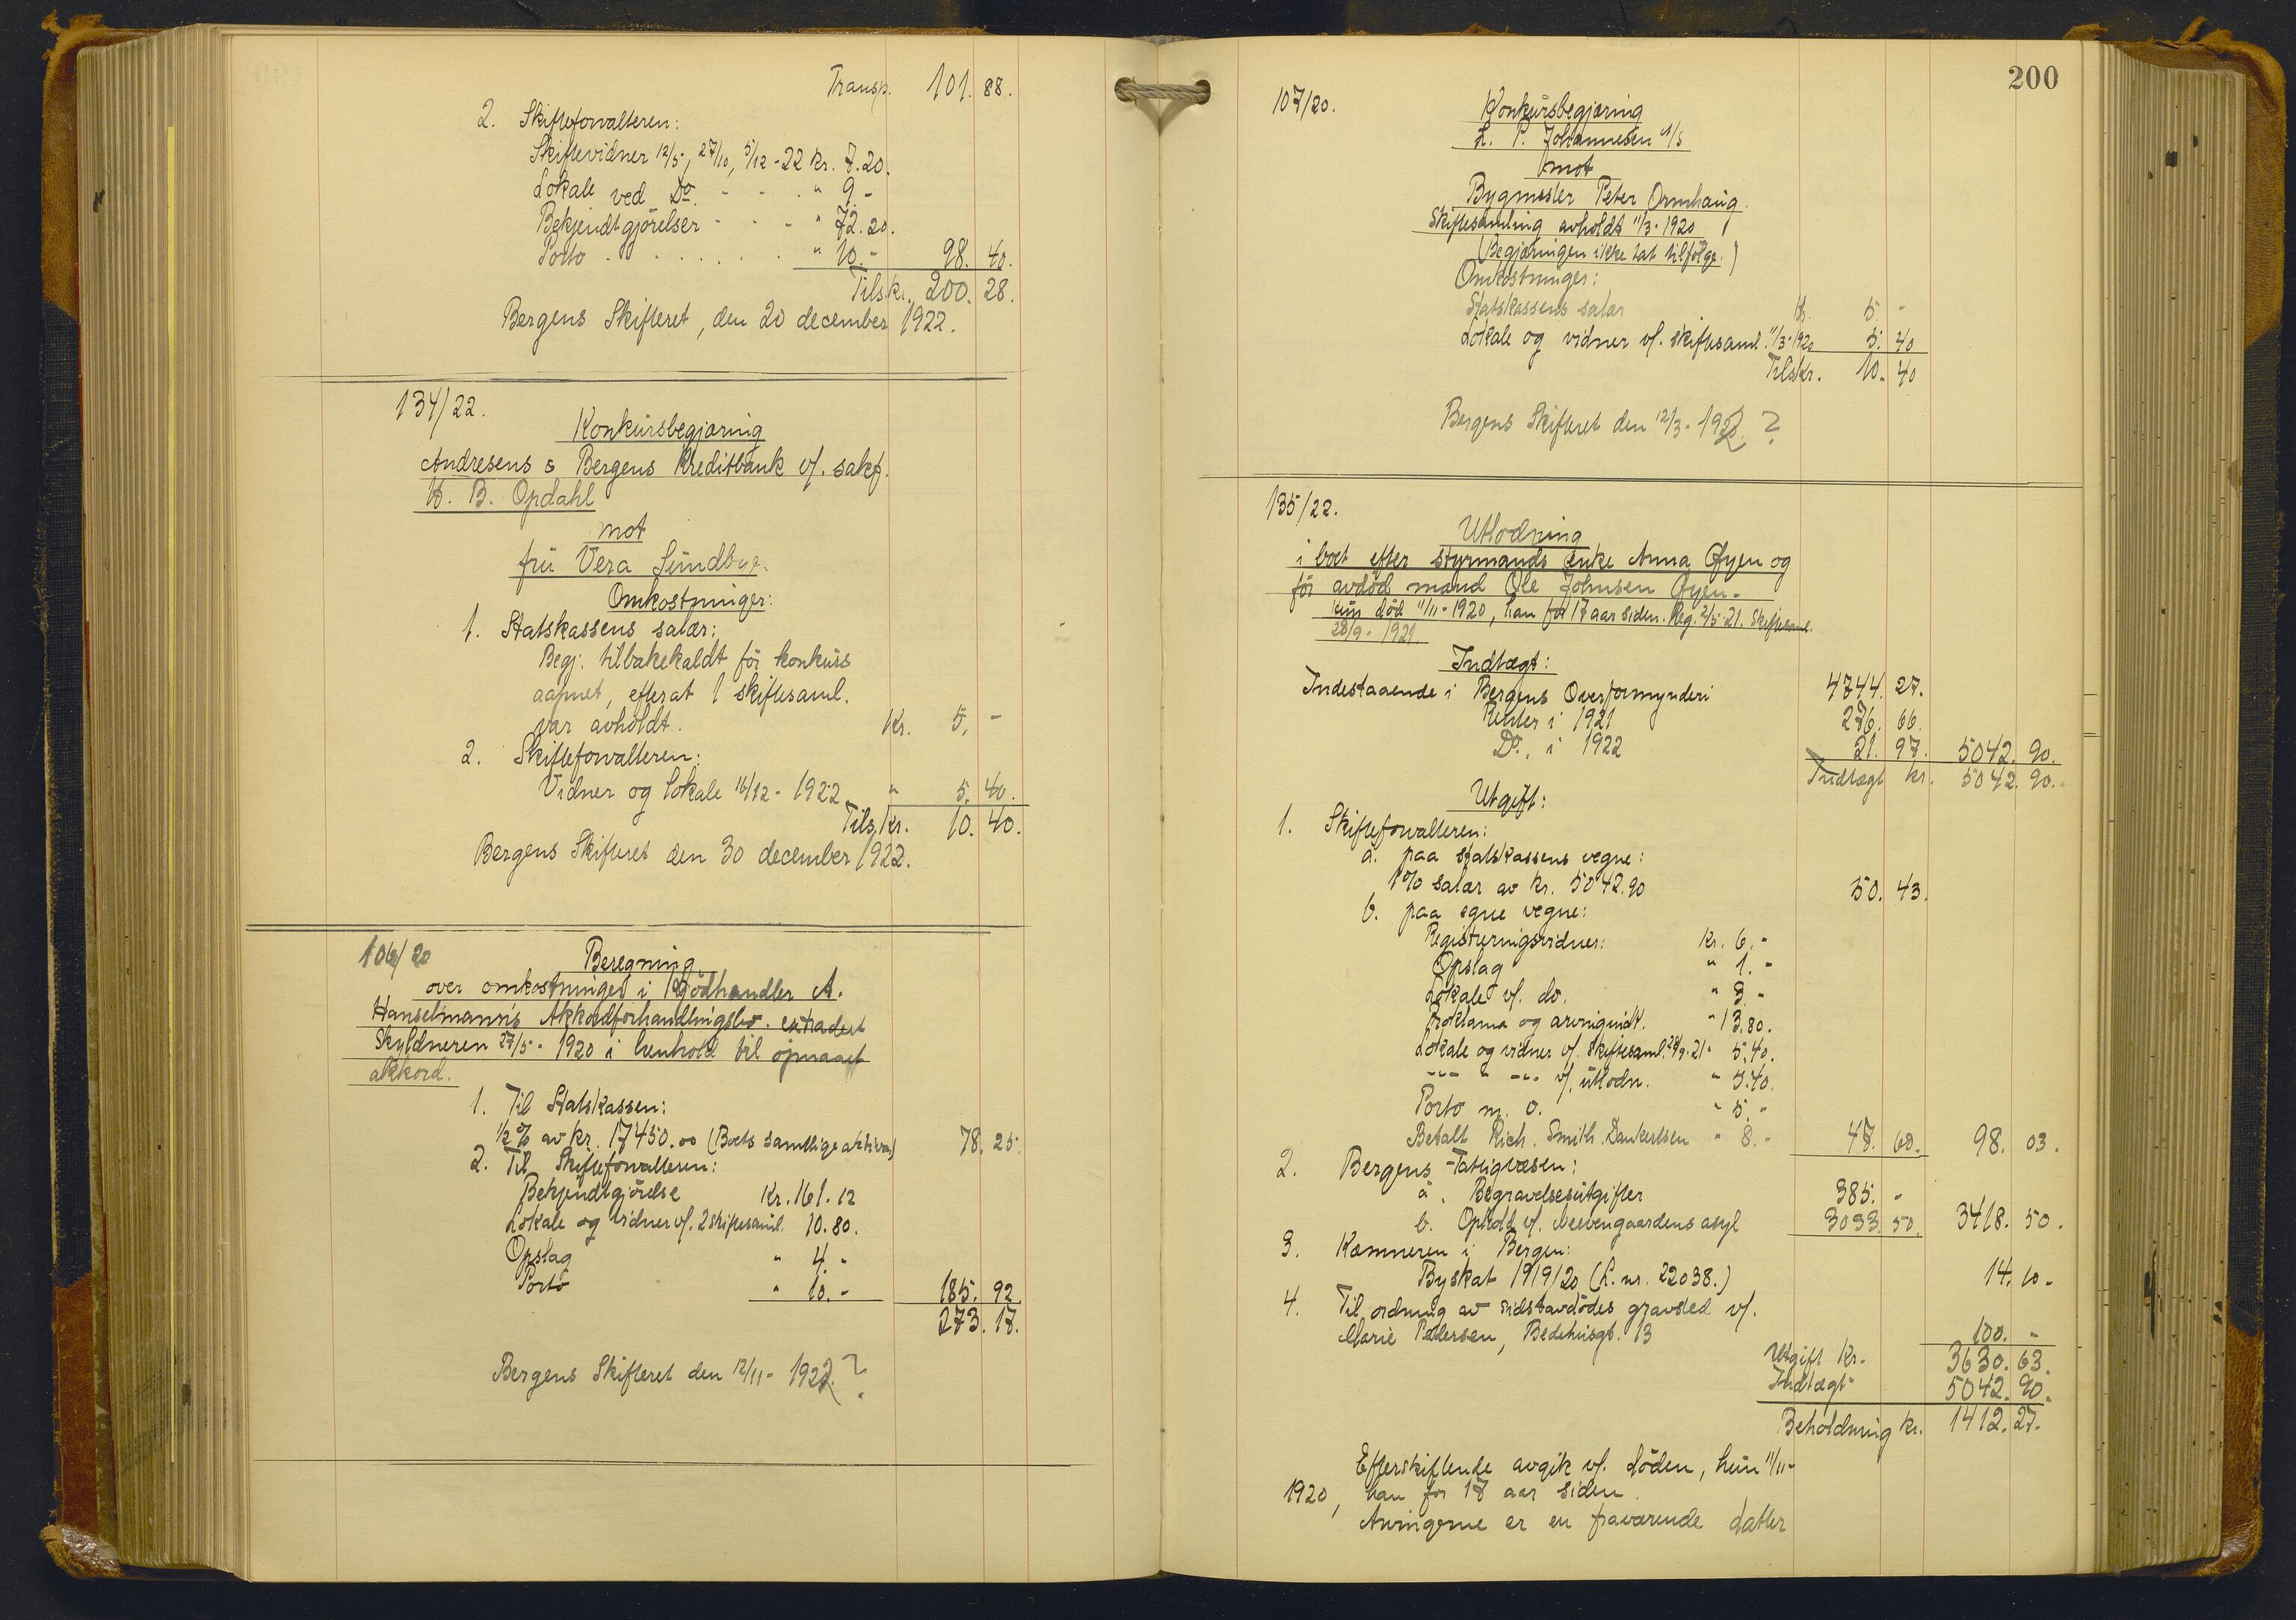 Transp. 101. 88.
2. Skifteforvalteren:
Skiftevidner 12/5, 27/10, 5/12-22 kr. 7.20.
Lokale ved Do. - - - " 9.-
Bekjendtgjörelser - - - " 72.20.
Porto . . . . . . . " 10.- 98. 40.
Tils. kr. 200. 28.
Bergens Skifteret, den 20 december 1922.
134/22.
Konkursbegjæring
Andresens & Bergens Kreditbank v/. sakf.
H. B. Opdahl
mot
fru Vera Sundbye.
Omkostninger:
1. Statskassens salær:
Begj. tilbakekaldt för konkurs
aapnet, efterat 1 skiftesaml.
var avholdt. Kr. 5, -
2. Skifteforvalteren:
Vidner og Lokale 16/12 - 1922 " 5. 40.
Tils. Kr. 10. 40.
Bergens Skifteret den 30 december 1922.
106/20
Beregning
over omkostninger i Kjödhandler A.
Hanselmann's Akkordforhandlingsbo. extradert
Skyldneren 27/5 - 1920 i henhold til opnaaet
akkord.
1. Til Statskassen:
1/2 % av kr. 17450.00 (Boets samtlige aktiva) 78. 25.
2. Til Skifteforvalteren:
Bekjendtgjörelse Kr. 161. 12
Lokale og vidner v/. 2 skiftesaml. 10. 80.
Opslag " 4. -
Porto " 10. - 185. 92
273. 17.
Bergens Skifteret den 12/11 - 1922. ?
200
107/20.
Konkursbegjæring
L. P. Johannesen A/S
mot
Bygmester Peter Ormhaug.
Skiftesamling avholdt 11/3 - 1920
(Begjæringen ikke tat tilfölge.)
Omkostninger:
Statskassens salær Kr. 5. -
Lokale og vidner v/. skiftesaml. 11/3-1920 5. 40
Tils. kr. 10. 40
Bergens Skifteret den 12/3 - 1922. ?
135/22.
Utlodning
i boet efter styrmands enke Anna Øyen og
för avdöd mand Ole Johnsen Øyen.-
hun död 11/11 - 1920, han for 17 aar siden. Reg. 2/5-21. Skiftesaml.
28/9 - 1921.
Indtægt:
Indestaaende i Bergens Overformynderi 4744. 27.
Renter i 1921 276. 66.
Do. i 1922 21. 97. 5042. 90.
Indtægt kr. 5042. 90.
Utgift:
1. Skifteforvalteren:
a. paa statskassens vegne:
1% salær av kr. 5042.90 50. 43.
b. paa egne vegne:
Registreringsvidner: Kr. 6.-
Opslag " 1.-
Lokale v/. do. " 3.-
Proklama og arvingindk. " 13.80.
Lokale og vidner v/. skiftesaml. 28/9-21 " 5.40.
-"- " -"- v/. utlodn. " 5.40.
Porto m. v. " 5.-
Betalt Rich. Smith Dankertsen " 8.- 47. 60. 98. 03.
2. Bergens Fattigvæsen:
a. Begravelsesutgifter 385. -
b. Ophold v/. Neevengaardens asyl 3033. 50. 3418. 50.
3. Kæmneren i Bergen:
Byskat 1919/20 (L. nr. 22038.) 14. 10.
4. Til ordning av sidstavdödes gravsted v/.
Marie Pedersen, Bedehusgt. 13 100. -
Utgift Kr. 3630. 63.
Indtægt " 5042. 90.
Beholdning kr. 1412. 27.
Efterskiftende avgik v/. döden, hun 11/11-
1920, han for 17 aar siden.
Arvingerne er en fraværende datter